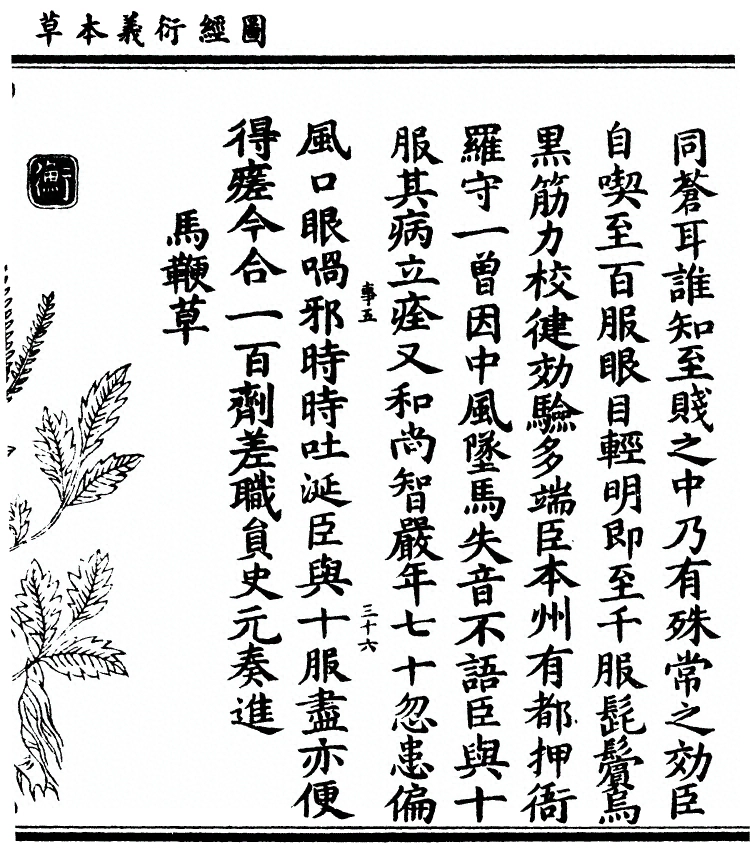 圖經衍義本草
同蒼耳誰知至賤之中乃有殊常之効臣
自喫至百服眼目輕明即至千服髭鬢烏
黒筋力校健効驗多端臣本州有都押衙
羅守一曽因中風墜馬失音不語臣與十
服其病立痊又和尚智嚴年七十忽患偏
事五
三十六
風口眼喎邪時時吐涎臣與十服盡亦便
得瘥今合一百劑差職貟史元奏進
馬鞭草
衡